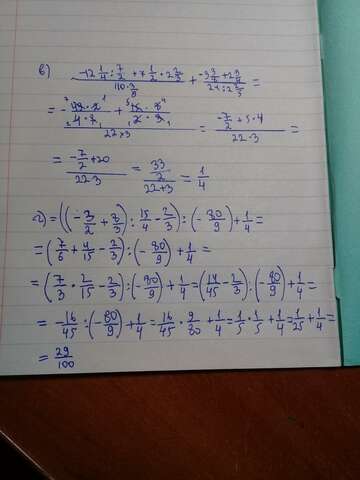 в) (-12 1/4 : 7/2 + 7 1/2 · 2 2/3) / (110 · 3/5) + (-3 3/4 + 2 3/4) / (21 : 2 2/3) =
= (-49·2 / 4·7 + 15·8 / 2·3) / (22×3) = (-7/2 + 5·4) / (22·3) =
= (-7/2 + 20) / (22·3) = (33/2) / (22+3) = 1/4
г) = ((-3/2 + 8/3) : 15/4 - 2/3) : (-80/9) + 1/4 =
= (7/6 + 4/15 - 2/3) : (-80/9) + 1/4 =
= (7/3 · 2/15 - 2/3) : (-80/9) + 1/4 = (14/45 - 2/3) : (-80/9) + 1/4 =
= -16/45 : (-80/9) + 1/4 = 16/45 · 9/80 + 1/4 = 1/5 · 1/5 + 1/4 = 1/25 + 1/4 =
= 29/100